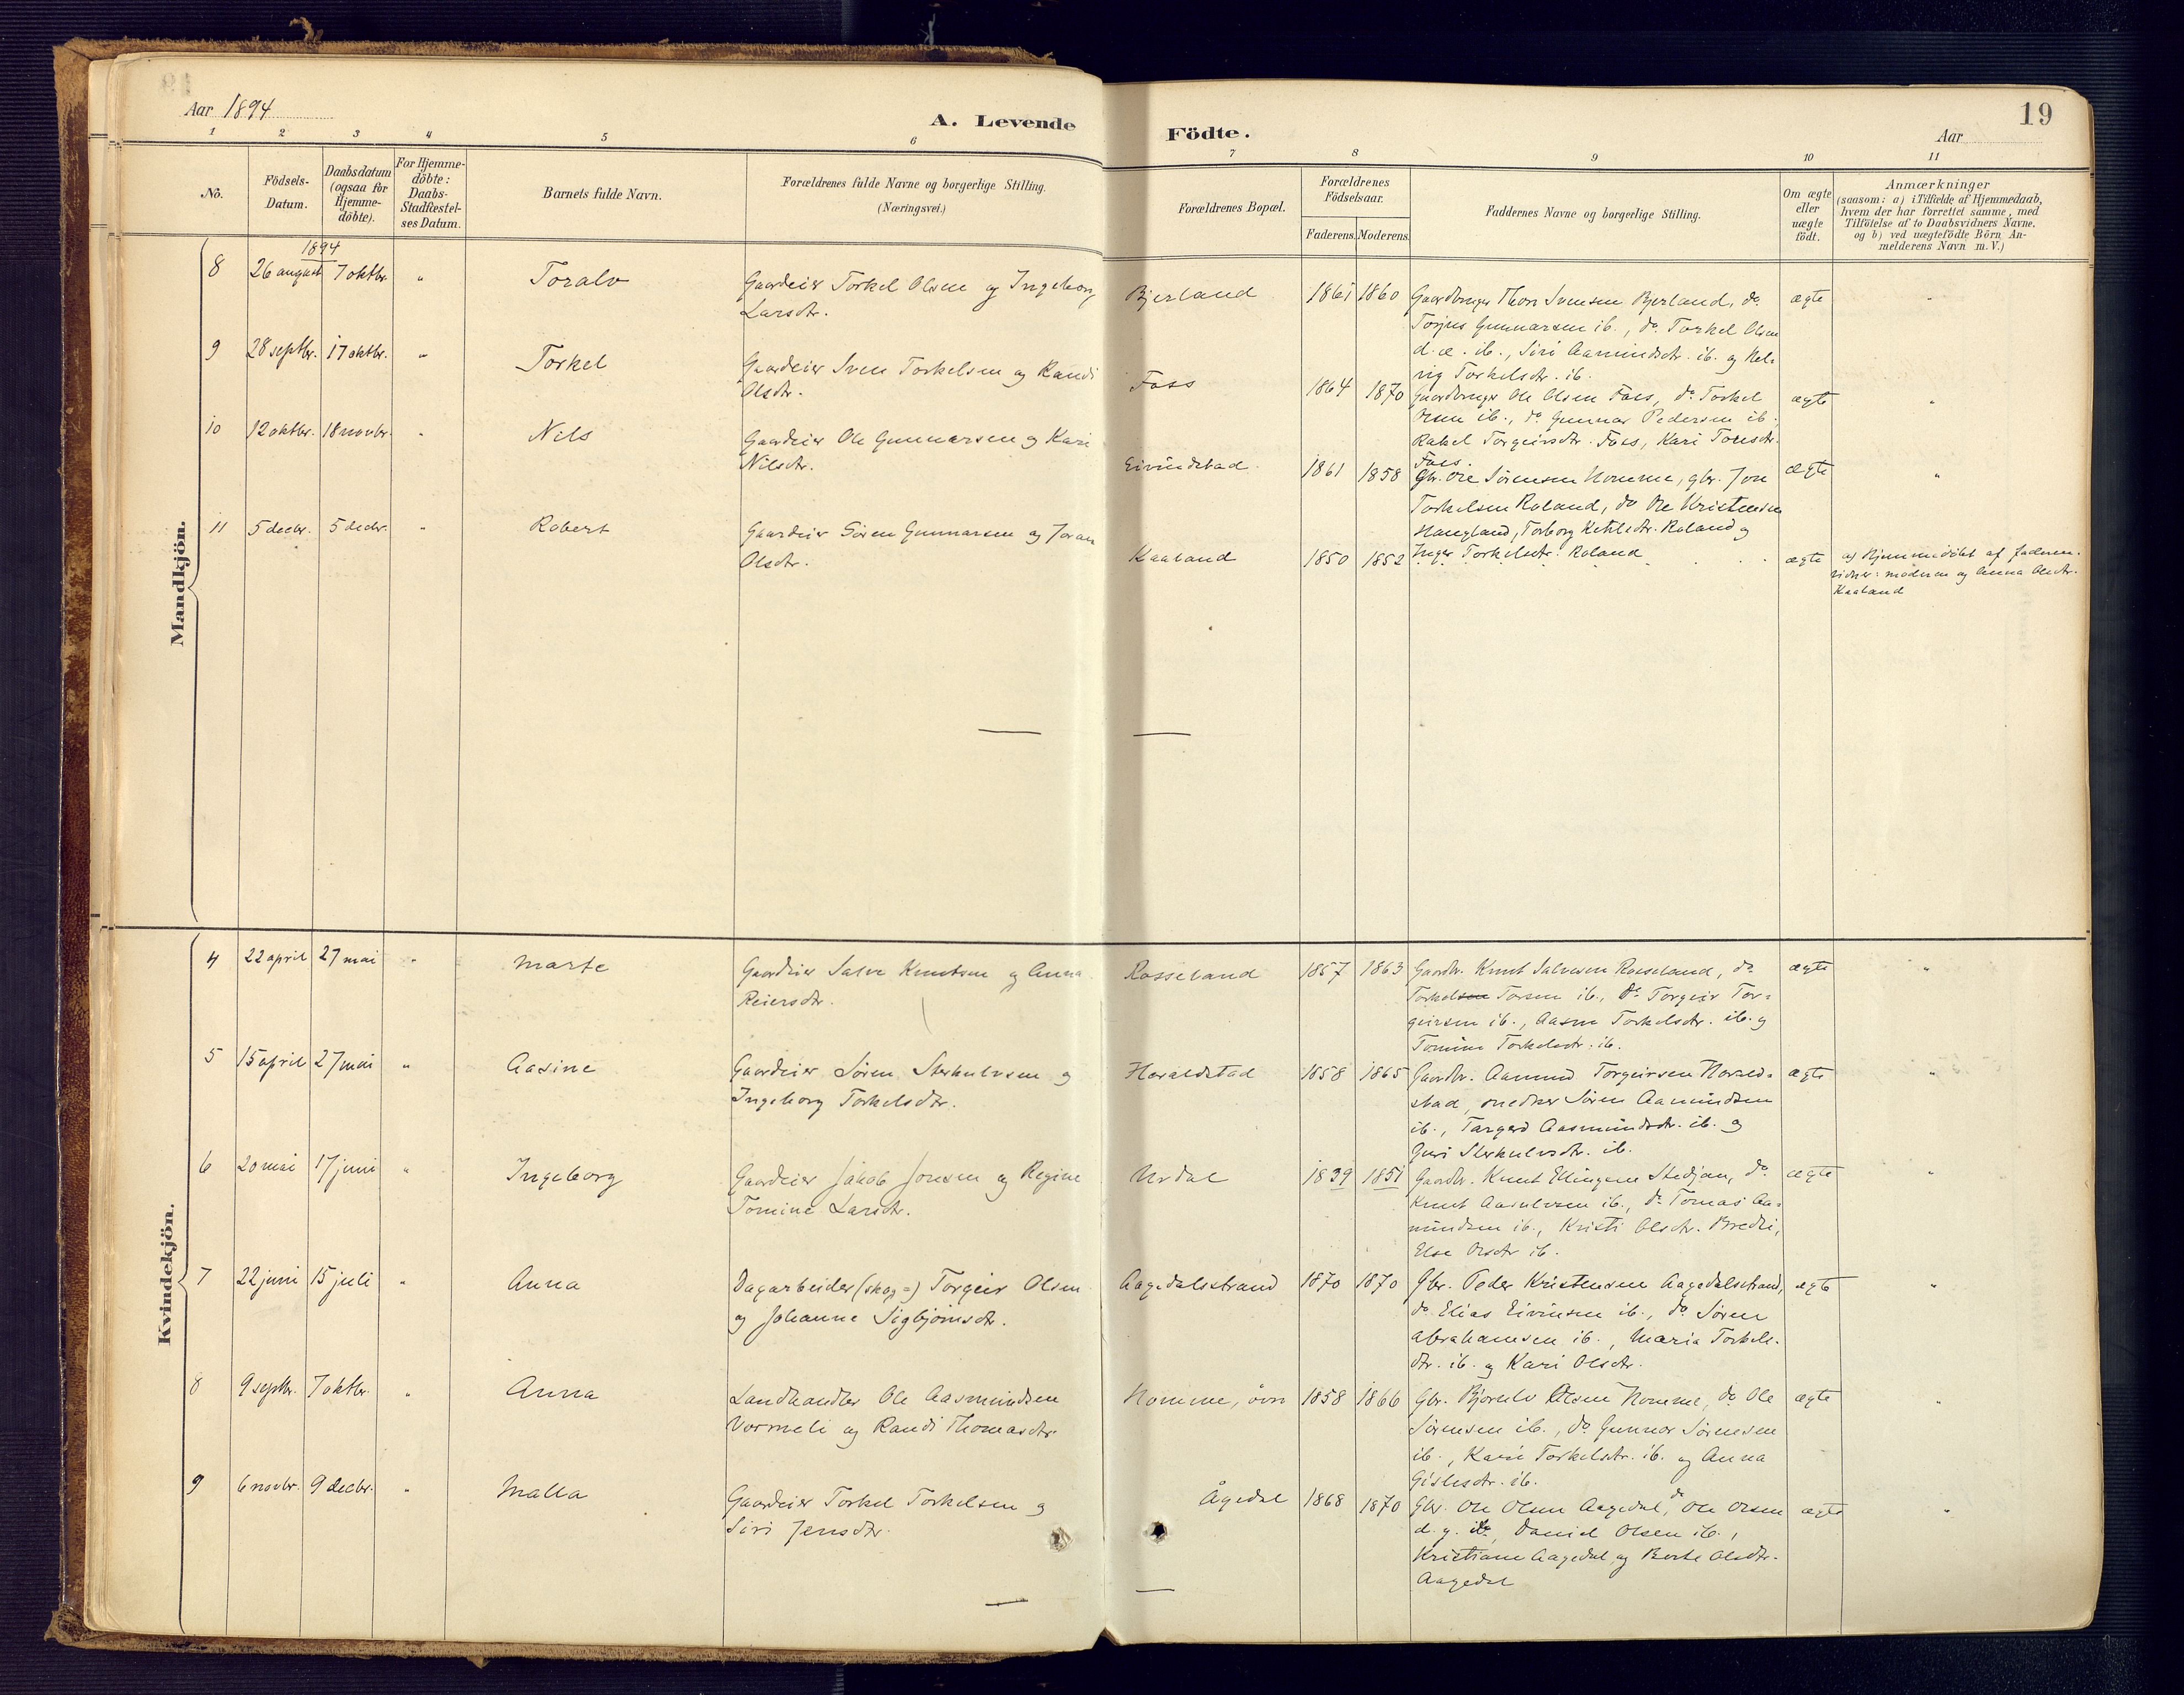 Aar 1894
A. Levende
Födte.
19
Aar
1
2
3
4
5
6
7
8
9
10
11
No.
Födsels-
Datum.
Daabsdatum
(ogsaa for
Hjemme-
döbte).
For Hjemme-
döbte:
Daabs-
Stadfæstel-
ses Datum.
Barnets fulde Navn.
Forældrenes fulde Navne og borgerlige Stilling.
(Næringsvei.)
Forældrenes Bopæl.
Forældrenes
Födselsaar.
Faderens. Moderens.
Faddernes Navne og borgerlige Stilling.
Om ægte
eller
uægte
födt.
Anmærkninger
(saasom: a) i Tilfælde af Hjemmedaab,
hvem der har forrettet samme, med
Tilföielse af to Daabsvidners Navne,
og b) ved uægtefödte Börn, An-
melderens Navn m. V.)
Mandkjön.
1894
8 26 august 7 oktbr. " Toralv
Gaardeier Torkel Olsen og Ingeborg
Larsdtr.
Bjerland 1861 1860
Gaardbruger Thore Svensen Bjerland, do.
Torjus Gunnarsen ib., do. Torkel Olsen
d. æ. ib., Siri Aamundsdtr. ib. og Hel-
vig Torkelsdtr. ib.
ægte "
9 28 septbr. 17 oktbr. " Torkel
Gaardeier Sven Torkelsen og Randi
Olsdtr.
Foss 1864 1870
Gaardbruger Ole Olsen Foss, do. Torkel
Olsen ib., do. Gunnar Pedersen ib.,
Rakel Torgeirsdtr. Foss, Kari Toresdtr.
Foss.
ægte "
10 12 oktbr. 18 novbr. " Nils
Gaardeier Ole Gunnarsen og Kari
Nilsdtr.
Eivindstad 1861 1858
Gbr. Ole Sörensen Homme, gbr. Jon
Torkelsen Roland, do. Ole Kristensen
Haugland, Torborg Ketilsdtr. Roland og
Inger Torkelsdtr. Roland
ægte "
11 5 decbr. 5 decbr. " Robert
Gaardeier Sören Gunnarsen og Joran
Olsdtr.
Kaaland 1850 1852
ægte
a) Hjemmedöbt af faderen.
vidner: moderen og Anna Olsdtr.
Kaaland
Kvindekjön.
4 22 april 27 mai " Marte
Gaardeier Salve Knutsen og Anna
Reiersdtr.
Rosseland 1857 1863
Gaardbr. Knut Salvesen Rosseland, do.
Torkelsen Torsen ib., do. Torgeir Tor-
geirsen ib., Aasne Torkelsdtr. ib. og
Tomine Torkelsdtr. ib.
ægte "
5 15 april 27 mai " Aasine
Gaardeier Sören Sterkulvsen og
Ingeborg Torkelsdtr.
Haraldstad 1858 1865
Gaardbr. Aamund Torgeirsen Harald-
stad, snedker Sören Aamundsen
ib., Targerd Aasmundsdtr. ib. og
Guri Sterkulvsdtr. ib.
ægte "
6 20 mai 17 juni " Ingeborg
Gaardeier Jakob Jonsen og Regine
Tomine Larsdtr.
Urdal 1839 1851
Gaardbr. Knut Ellingsen Stedjan, do.
Knut Aasulvsen ib., do. Tomas Aa-
mundsen ib., Kristi Olsdtr. Bredli,
Else Olsdtr ib.
ægte "
7 22 juni 15 juli " Anna
Dagarbeider (skog-) Torgeir Olsen
og Johanne Sigbjörnsdtr.
Aagedalsstrand 1870 1870
Gbr. Peder Kristensen Aagedalsstrand,
do. Elias Eivinsen ib., do. Sören
Abrahamsen ib., Maria Torkels-
dtr. ib. og Kari Olsdtr.
ægte "
8 9 septbr. 7 oktbr. " Anna
Landhandler Ole Aasmundsen
Vormeli og Randi Thomasdtr.
Homme, övre 1858 1866
Gbr. Bjorulv Olsen Homme, do. Ole
Sörensen ib., do. Gunnar Sörensen
ib., Kari Torkelsdtr. ib. og Anna
Gislesdtr. ib.
ægte "
9 6 novbr. 9 decbr. " Malla
Gaardeier Torkel Torkelsen og
Siri Jensdtr.
Ågedal 1868 1870
Gbr. Ole Olsen Aagedal, do. Ole Olsen
d. y. ib., Daniel Olsen ib.,
Kristiane Aagedal og Berte Olsdtr.
Aagedal
ægte "